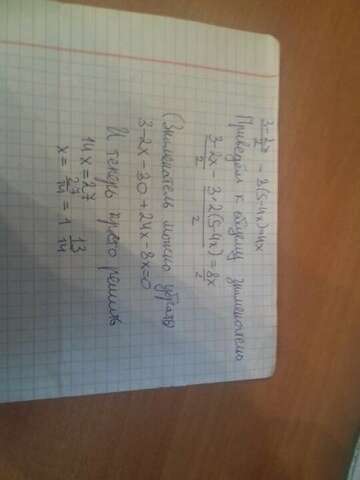 3-2x/2 - 3(5-4x)=4x
Приведём к общему знаменателю
3-2x/2 - 3·2(5-4x)/2 = 8x/2
(Знаменатель можно убрать)
3-2x-30+24x-8x=0
И теперь просто решить
14x=27
x= 27/14 = 1 13/14